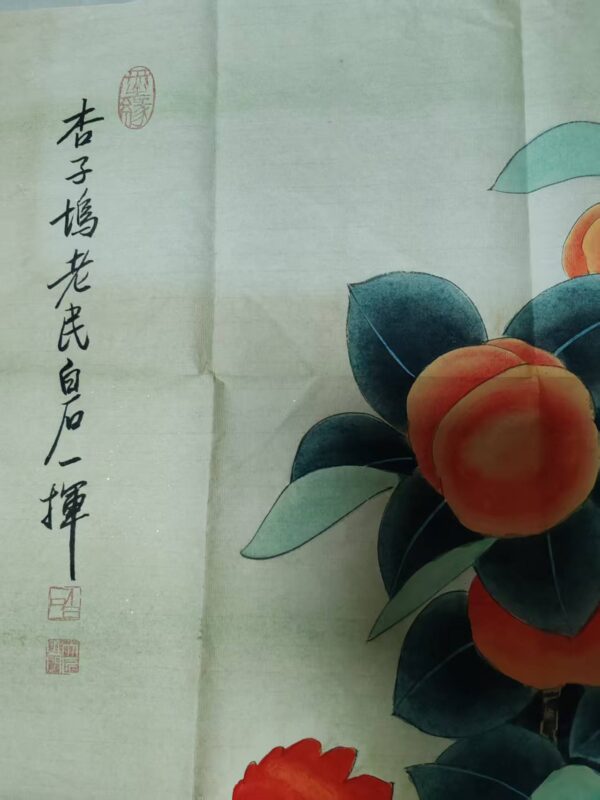 杏子塢老民白石一揮